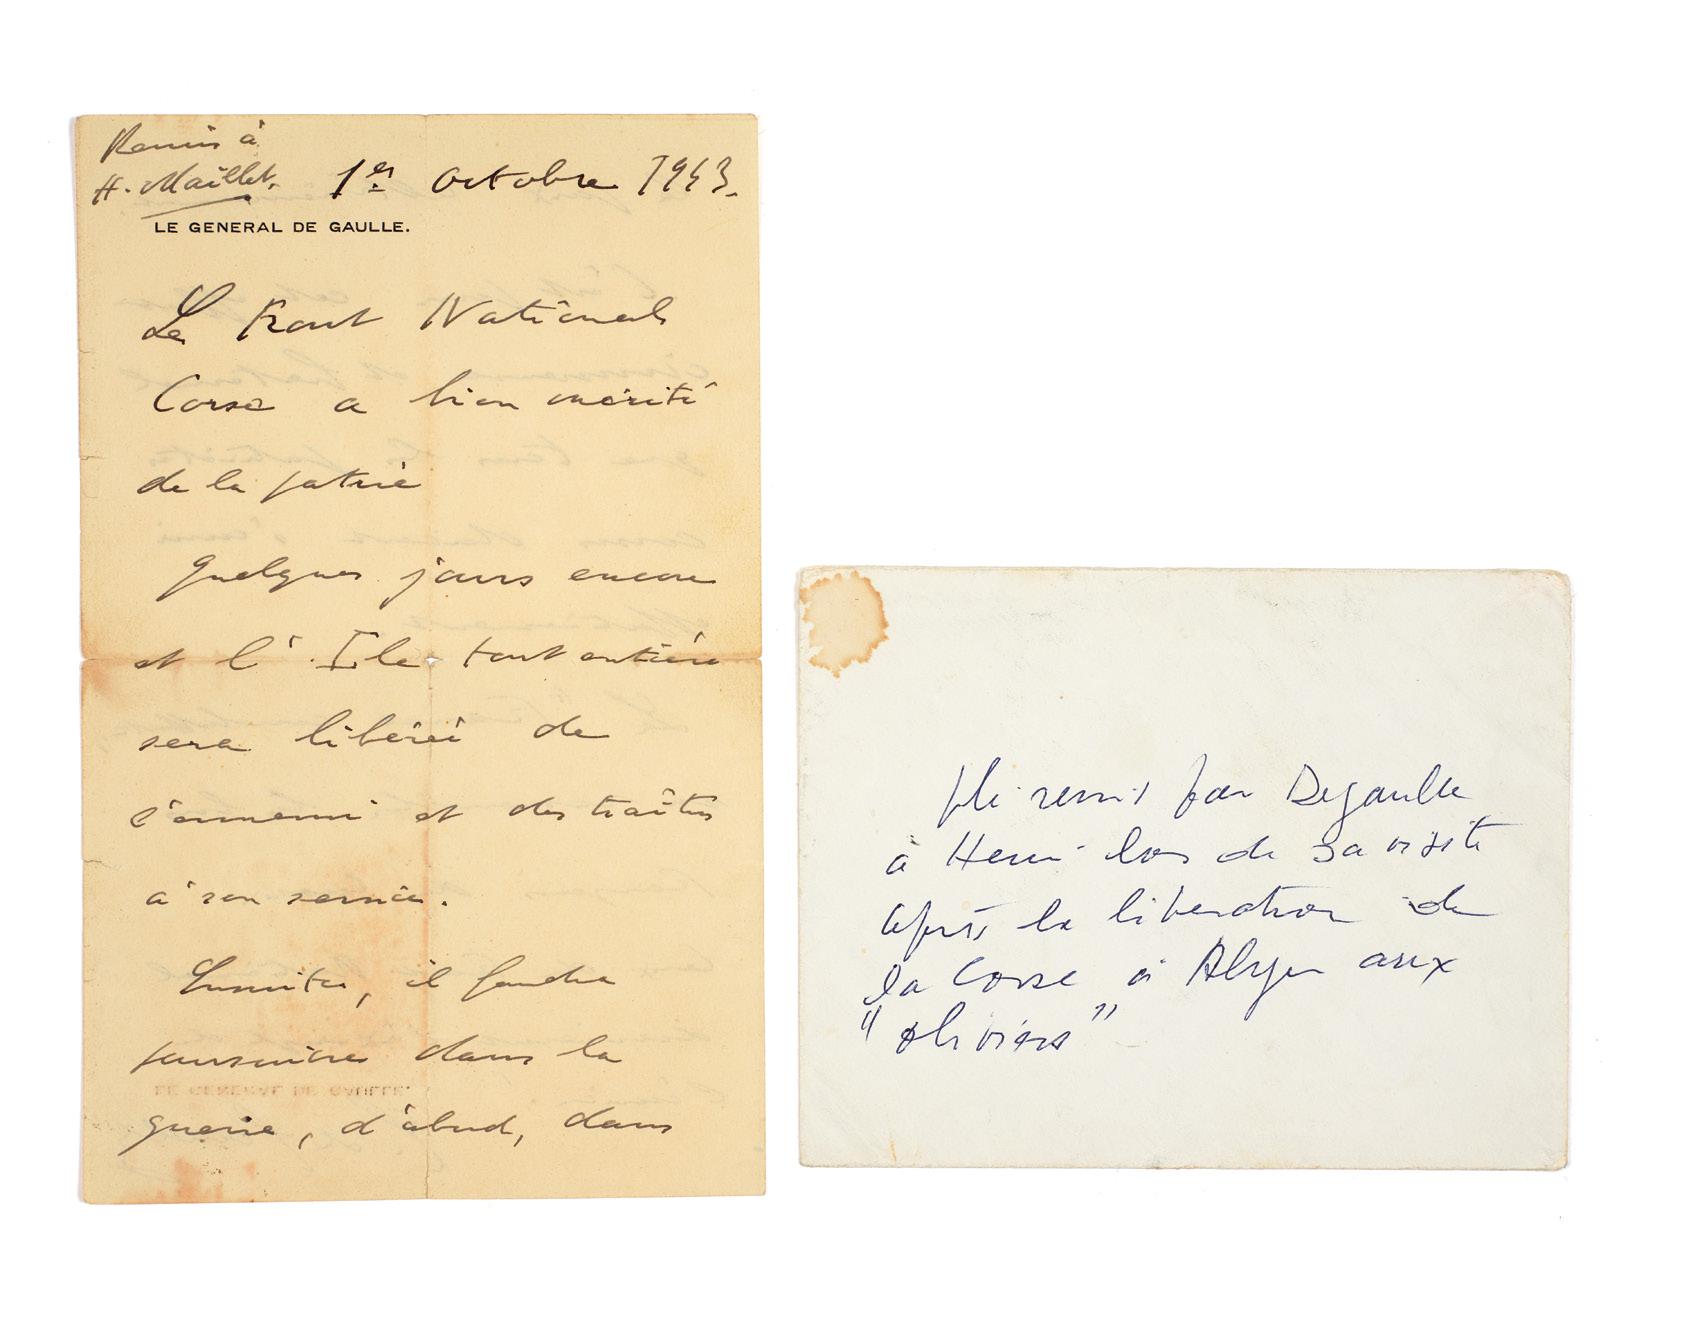 Remis à
H. Maillet.
1er octobre 1943.
LE GENERAL DE GAULLE.
Le Front National
Corse a bien mérité
de la patrie
Quelques jours encore
et l'Ile tout entière
sera libérée de
l'ennemi et des traîtres
à son service.
Ensuite, il faudra
poursuivre dans la
guerre, d'abord, dans
LE GENERAL DE GAULLE.
Pli remis par Degaulle
à Henri lors de sa visite
après la liberation de
la Corse à Alger aux
"oliviers"